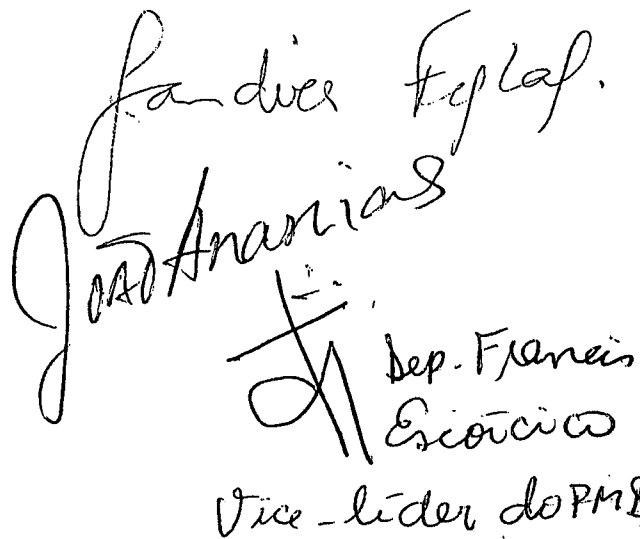 Jandira
João Ananias
Dep. Francis
Escórcio
Vice-líder do PMD